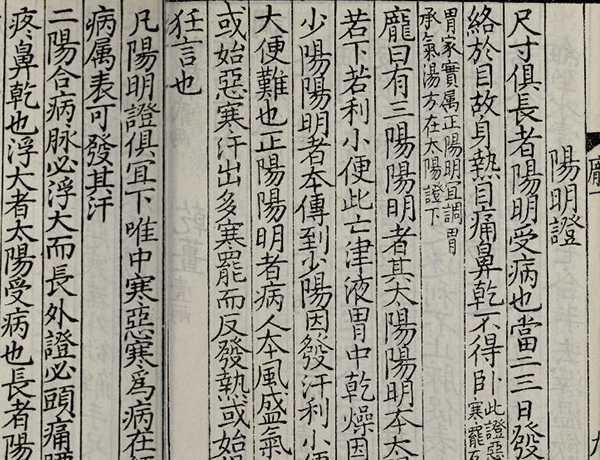 龐
九
陽明證
尺寸俱長者陽明受病也當二三日發
絡於目故身熱目痛鼻乾不得卧
此證惡
寒罷
胃家實属正陽明宜調胃
承氣湯方在太陽證下
龐曰有三陽陽明者其太陽陽明本太
若下若利小便此亡津液胃中乾燥因
少陽陽明者本傳到少陽因發汗利小
大便難也正陽陽明者病人本風盛氣
或始惡寒汗出多寒罷而反發熱或始
狂言也
凡陽明證俱宜下唯中寒惡寒爲病在
病属表可發其汗
二陽合病脉必浮大而長外證必頭痛腰
疼鼻乾也浮大者太陽受病也長者陽